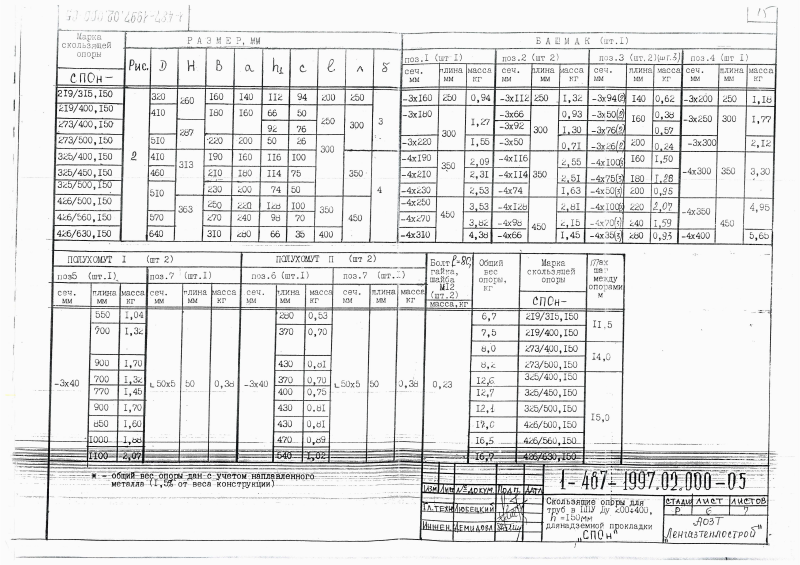 15
Марка скользящей опоры СПОн- | Рис. | РАЗМЕР, ММ | БАШМАК (шт.I)
D | H | B | a | h₁ | c | ℓ | л | δ | поз.I (шт I) | поз.2 (шт 2) | поз.3 (шт.2)(шт.3) | поз.4 (шт I)
сеч. мм | длина мм | масса кг | сеч. мм | длина мм | масса кг | сеч. мм | длина мм | масса кг | сеч. мм | длина мм | масса кг
219/315,I50 | 2 | 320 | 260 | 160 | 140 | 112 | 94 | 200 | 250 | 3 | -3х160 | 250 | 0,94 | -3х112 | 250 | 1,32 | -3х94(2) | 140 | 0,62 | -3х200 | 250 | 1,18
219/400,I50 | 410 | 180 | 160 | 66 | 50 | 250 | 300 | -3х180 | 300 | 1,27 | -3х66 | 300 | 0,93 | -3х50(2) | 160 | 0,38 | -3х250 | 300 | 1,77
273/400,I50 | 287 | 92 | 76 | -3х92 | 1,30 | -3х76(2) | 0,57
273/500,I50 | 510 | 220 | 200 | 50 | 26 | 300 | -3х220 | 1,55 | -3х50 | 0,71 | -3х26(2) | 200 | 0,24 | -3х300 | 2,12
325/400,I50 | 410 | 313 | 190 | 160 | 116 | 100 | 350 | 4 | -4х190 | 350 | 2,09 | -4х116 | 350 | 2,55 | -4х100(3) | 160 | 1,50 | -4х300 | 350 | 3,30
325/450,I50 | 460 | 210 | 180 | 114 | 75 | -4х210 | 2,31 | -4х114 | 2,51 | -4х75(3) | 180 | 1,28
325/500,I50 | 510 | 230 | 200 | 74 | 50 | -4х230 | 2,53 | -4х74 | 1,63 | -4х50(3) | 200 | 0,95
426/500,I50 | 363 | 250 | 220 | 128 | 100 | 350 | 450 | -4х250 | 450 | 3,53 | -4х128 | 450 | 2,81 | -4х100(3) | 220 | 2,07 | -4х350 | 450 | 4,95
426/560,I50 | 570 | 270 | 240 | 98 | 70 | -4х270 | 3,82 | -4х98 | 2,15 | -4х70(3) | 240 | 1,59
426/630,I50 | 640 | 310 | 280 | 66 | 35 | 400 | -4х310 | 4,38 | -4х66 | 1,45 | -4х35(3) | 280 | 0,93 | -4х400 | 5,65
ПОЛУХОМУТ I (шт 2) | ПОЛУХОМУТ П (шт 2) | Болт ℓ=80, гайка, шайба М12 (шт.2) масса,кг | Общий вес опоры, кг | Марка скользящей опоры СПОн- | max шаг между опорами м
поз5 (шт.I) | поз.7 (шт.I) | поз.6 (шт.I) | поз.7 (шт.I)
сеч. мм | длина мм | масса кг | сеч. мм | длина мм | масса кг | сеч. мм | длина мм | масса кг | сеч. мм | длина мм | масса кг
-3х40 | 550 | 1,04 | ∟50х5 | 50 | 0,38 | -3х40 | 280 | 0,53 | ∟50х5 | 50 | 0,38 | 0,23 | 6,7 | 219/315,I50 | 11,5
700 | 1,32 | 370 | 0,70 | 7,5 | 219/400,I50
8,0 | 273/400,I50 | 14,0
900 | 1,70 | 430 | 0,81 | 8,2 | 273/500,I50
700 | 1,32 | 370 | 0,70 | 12,6 | 325/400,I50 | 15,0
770 | 1,45 | 400 | 0,75 | 12,7 | 325/450,I50
900 | 1,70 | 430 | 0,81 | 12,1 | 325/500,I50
850 | 1,60 | 430 | 0,81 | 17,0 | 426/500,I50
1000 | 1,88 | 470 | 0,89 | 16,5 | 426/560,I50
1100 | 2,07 | 540 | 1,02 | 16,7 | 426/630,I50
ж - общий вес опоры дан с учетом наплавленного
металла (1,5% от веса конструкции)
1-487-1997.02.000-05
ИЗМ | ЛИСТ | № ДОКУМ. | ПОДП. | ДАТА
ГЛ.ТЕХН | ЛЮБЕЦКИЙ
ИНЖЕН. | ДЕМИДОВА
Скользящие опоры для
труб в ППУ Ду 200÷400,
h =150мм
длиннадземной прокладки
"СПОн"
СТАДИЯ | ЛИСТ | ЛИСТОВ
Р | 6 | 7
АОЗТ
„Ленгазтеплострой"